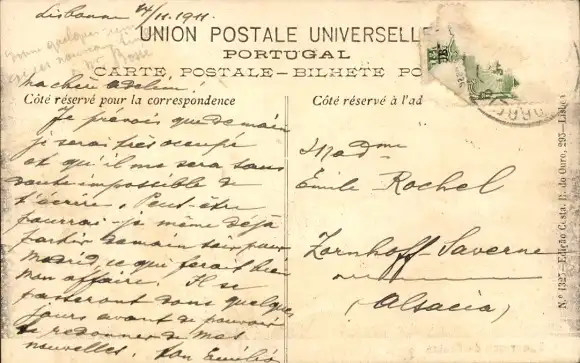 Lisbonne 4/11.1911.
UNION POSTALE UNIVERSELLE
PORTUGAL
CARTE POSTALE-BILHETE PO
Ma chère Adeline!
Côté réservé pour la correspondence
Côté réservé à l'ad
Je prévois que demain
je serai très occupé
et qu'il me sera sans
doute impossible de
t'écrire. Peut-être
pourrai-je même déjà
partir demain soir pour
Madrid, ce qui ferait bien
mon affaire. Il se
passeront donc quelques
jours avant de pouvoir
te redonner de mes
nouvelles. Ton Emile
Madme
Emile Rochel
Zornhoff-Saverne
(Alsacia)
N.º 1327-Edição Costa, R. do Ouro, 295-Lisboa